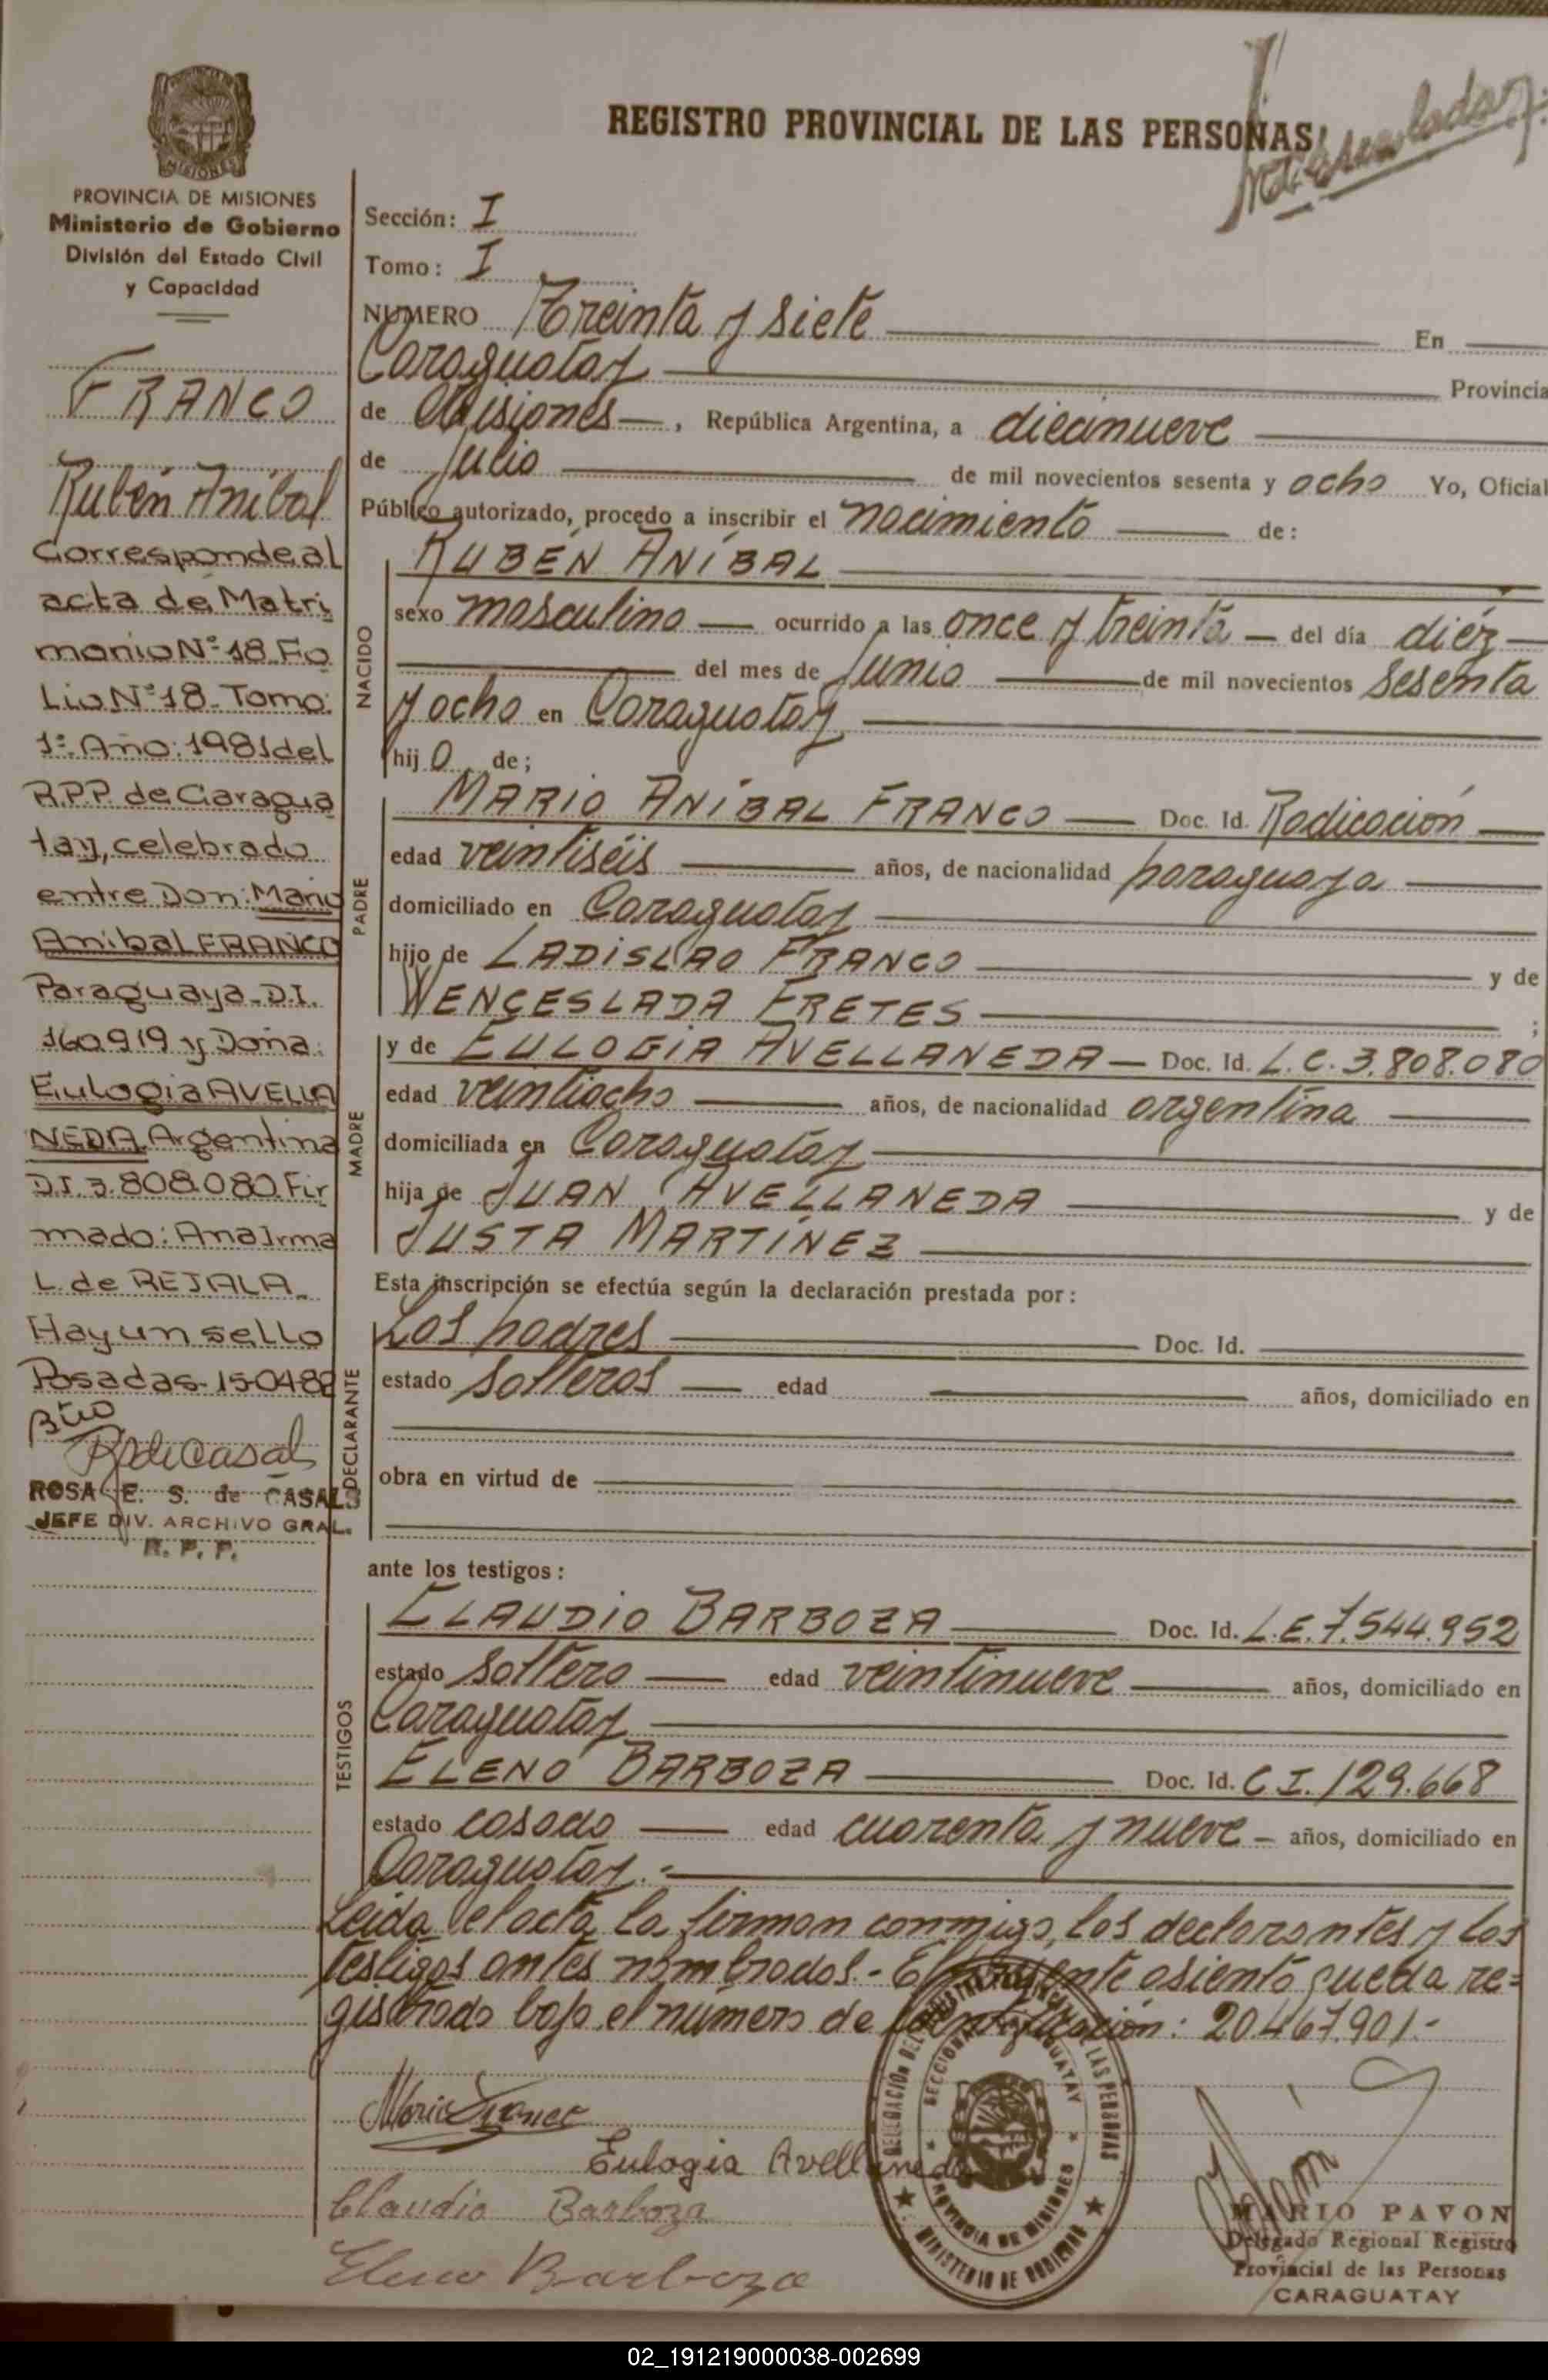 REGISTRO PROVINCIAL DE LAS PERSONAS
MISIONES
PROVINCIA DE MISIONES
Ministerio de Gobierno
División del Estado Civil
y Capacidad
FRANCO
Rubén Aníbal
Corresponde al
acta de Matri
monio Nº 18. Fo
Lio Nº 18. Tomo:
1º. Año: 1981 del
R.P.P. de Caragua
tay, celebrado
entre Don: Mario
Anibal FRANCO
Paraguaya. D.I.
160.919 y Doña:
Eulogia AVELLA
NEDA Argentina
D.I. 3.808.080. Fir
mado: Ana Irma
L. de REJALA.
Hay un sello
Posadas. 15-04-82
ROSA E. S. de CASALS
JEFE DIV. ARCHIVO GRAL.
R. P. P.
Sección: I
Tomo: I
NUMERO Treinta y siete En
Caraguatay Provincia
de Misiones, República Argentina, a diecinueve
de Julio de mil novecientos sesenta y ocho Yo, Oficial
Público autorizado, procedo a inscribir el nacimiento de:
NACIDO
RUBÉN ANÍBAL
sexo masculino ocurrido a las once y treinta del día diéz
del mes de Junio de mil novecientos sesenta
y ocho en Caraguatay
hijo de;
PADRE
MARIO ANÍBAL FRANCO Doc. Id. Radicación
edad veintiséis años, de nacionalidad paraguaya
domiciliado en Caraguatay
hijo de LADISLAO FRANCO y de
WENCESLADA FRETES ;
MADRE
y de EULOGIA AVELLANEDA Doc. Id. L.C. 3.808.080
edad veintiocho años, de nacionalidad argentina
domiciliada en Caraguatay
hija de JUAN AVELLANEDA y de
JUSTA MARTÍNEZ
Esta inscripción se efectúa según la declaración prestada por:
DECLARANTE
Los padres Doc. Id.
estado solteros edad años, domiciliado en
obra en virtud de
ante los testigos:
TESTIGOS
CLAUDIO BARBOZA Doc. Id. L.E. 7.544.952
estado soltero edad veintinueve años, domiciliado en
Caraguatay
ELENO BARBOZA Doc. Id. C I. 129.668
estado casado edad cuarenta y nueve años, domiciliado en
Caraguatay.-
Leída el acta la firman conmigo, los declarantes y los
testigos antes nombrados.- El presente asiento queda re=
gistrado bajo el número de identificación: 20.467.901.-
Mario Franco
Eulogia Avellaneda
Claudio Barboza
Eleno Barboza
DELEGACION DEL REGISTRO PROVINCIAL DE LAS PERSONAS
SECCIONAL CARAGUATAY
PROVINCIA DE MISIONES
MINISTERIO DE GOBIERNO
MARIO PAVON
Delegado Regional Registro
Provincial de las Personas
CARAGUATAY
02_191219000038-002699